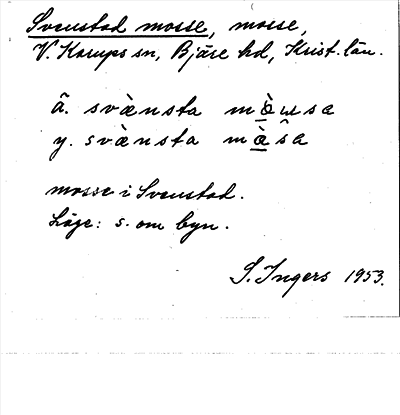 Svenstad mosse, mosse,
V. Karups sn, Bjäre hd, Krist. län.
ä. svænsta
y. svænsta
mosse i Svenstad.
Läge: s. om byn.
S. Ingers 1953.